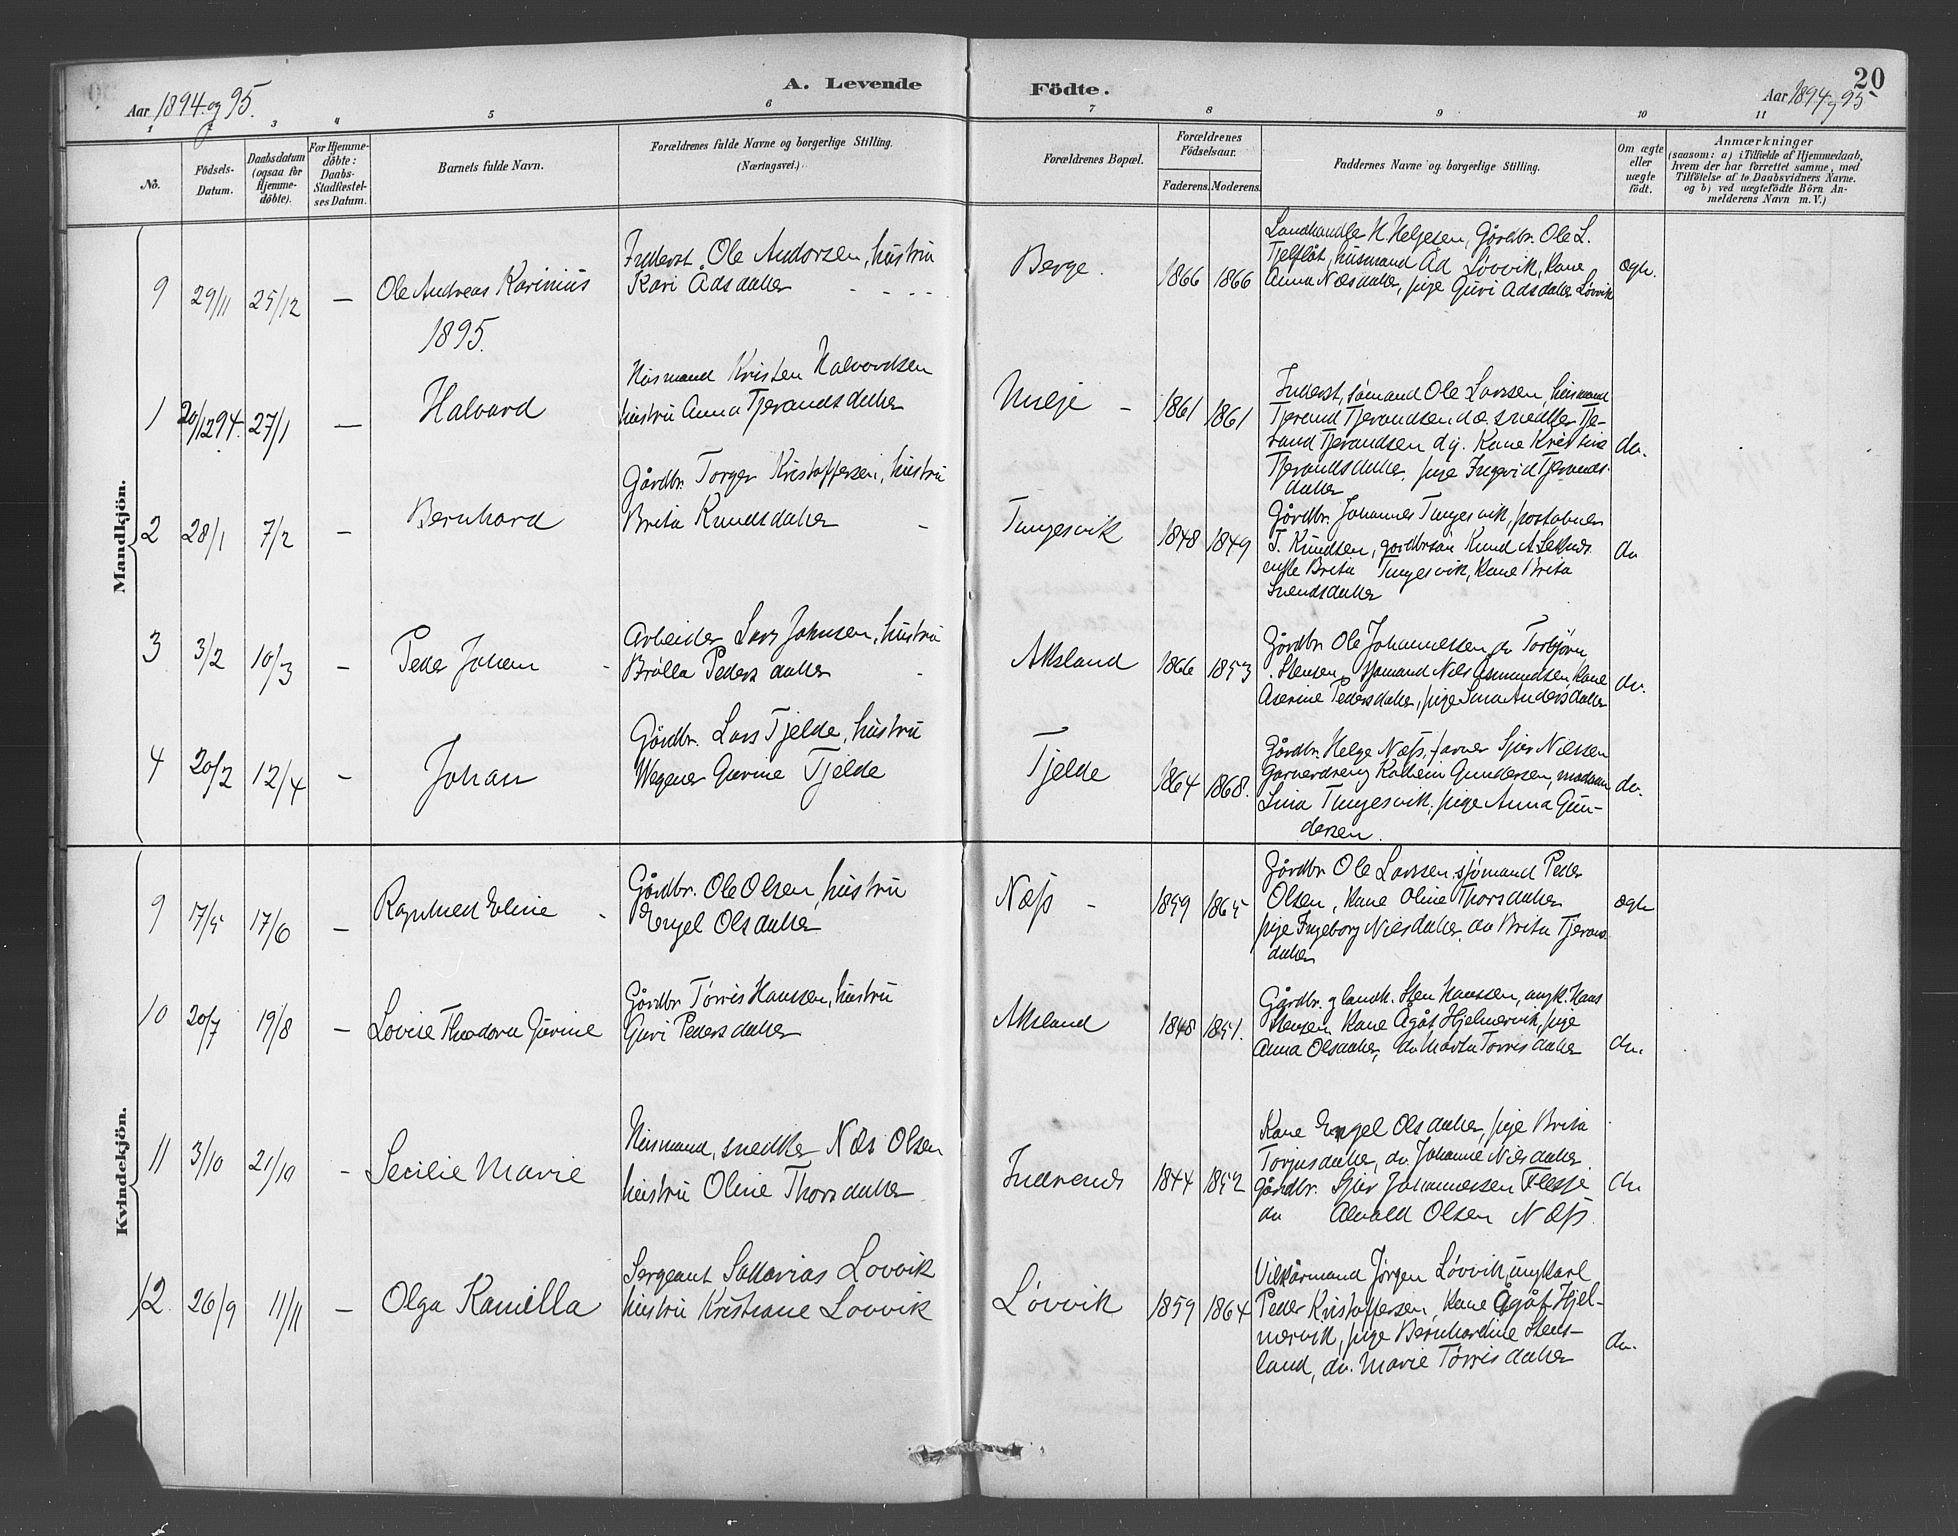 20
A. Levende Födte.
Aar 1894 og 95.
Aar 1894 og 95
1 2 3 4 5 6 7 8 9 10 11
No.
Födsels-Datum.
Daabsdatum (ogsaa for Hjemme-döbte).
For Hjemme-döbte: Daabs-Stadfæstel-ses Datum.
Barnets fulde Navn.
Forældrenes fulde Navne og borgerlige Stilling.
(Næringsvei.)
Forældrenes Bopæl.
Forældrenes Födselsaar.
Faderens. Moderens.
Faddernes Navne og borgerlige Stilling.
Om ægte eller uægte födt.
Anmærkninger
(saasom: a) i Tilfælde af Hjemmedaab,
hvem der har forrettet samme, med
Tilföielse af to Daabsvidners Navne.
og b) ved uægtefödte Börn An-
melderens Navn m. V.)
Mandkjön.
9 29/11 25/12 — Ole Andreas Karinius
Inderst. Ole Andorsen, hustru
Kari Ådsdatter
Berge. 1866 1866
Landhandler H. Helgesen, Gårdbr. Ole L.
Tjelflåt, husmand Ad Løvvik, Kone
Anna Næsdatter, pige Guri Adsdatter Løvvik
ægte.
1895.
1 20/12 94. 27/1 — Halvard
Husmand Kristen Halvordsen
hustru Anna Tjerandsdatter
1861 1861
Inderst, sømand Ole Larsen, husmand
Tjerand Tjerandsen d.æ. snedker Tje-
rand Tjerandsen d.y. Kone Kristine
Tjerandsdatter, pige Ingerid Tjerands-
datter
do.
2 28/1 7/2 — Bernhard
Gårdbr. Torger Kristoffersen, hustru
Brita Knudsdatter
Tungesvik 1848 1849
Gårdbr. Johannes Tungesvik, postaabner
T. Knudsen, gårdbrsøn Knud A.
enke Brita Tungesvik, Kone Brita
Svendsdatter
do
3 3/2 10/3 — Peder Johan
Arbeider Lars Johnsen, hustru
Brålla Pedersdatter
Aksland 1866 1853
Gårdbr. Ole Johannessen, do Torbjørn
Stensen, sjømand Nils Asmundsen, Kone
Aserine Pedersdatter, pige Sina Andersdatter
do.
4 20/2 12/4 — Johan
Gårdbr. Lars Tjelde, hustru
Wegener Gurine Tjelde
Tjelde 1864 1868.
Gårdbr. Helge Næss, farver Sjur Nilssen
Garverdreng Gundersen, madam
Lina Tungesvik, pige Anna Gun-
dersen.
do.
Kvindekjön.
9 17/5 17/6 — Ragnhild Eline
Gårdbr. Ole Olsen, hustru
Engel Olsdatter
Næss 1859 1865
Gårdbr Ole Larssen, sjömand Peder
Olsen, Kone Oline Thorsdatter
pige Ingeborg Nilsdatter, do Brita Tjerans-
datter
ægte
10 20/7 19/8 — Lovise Theodora Gurine
Gårdbr Tørris Hanssen, hustru
Guri Pedersdatter
Aksland 1848 1851.
Gårdbr. og landh. Sten Hanssen, ungk. Hans
Stensen, Kone Agåt Hjelmervik, pige
Anna Olsdatter, do Marta Torrisdatter
do.
11 3/10 21/10 — Secilie Marie
Husmand, snedker Nils Olsen
hustru Oline Thorsdatter
Indrenæs 1844 1852
Kone Engel Olsdatter, pige Brita
Torjusdatter, do. Johanne Nilsdatter.
Gårdbr. Sjur Johannessen Flesje
do Olsen Næss.
do.
12. 26/9 11/11 — Olga Kamilla
Sergeant Sakarias Lovvik
hustru Kristiane Lovvik
Løvvik 1859 1864
Vilkårmand Jørgen Løvvik, ungkarl
Peder Kristoffersen, Kone Agåt Hjel-
mervik, pige Bernhardine Stens-
land, do. Marie Tørrisdatter
do.